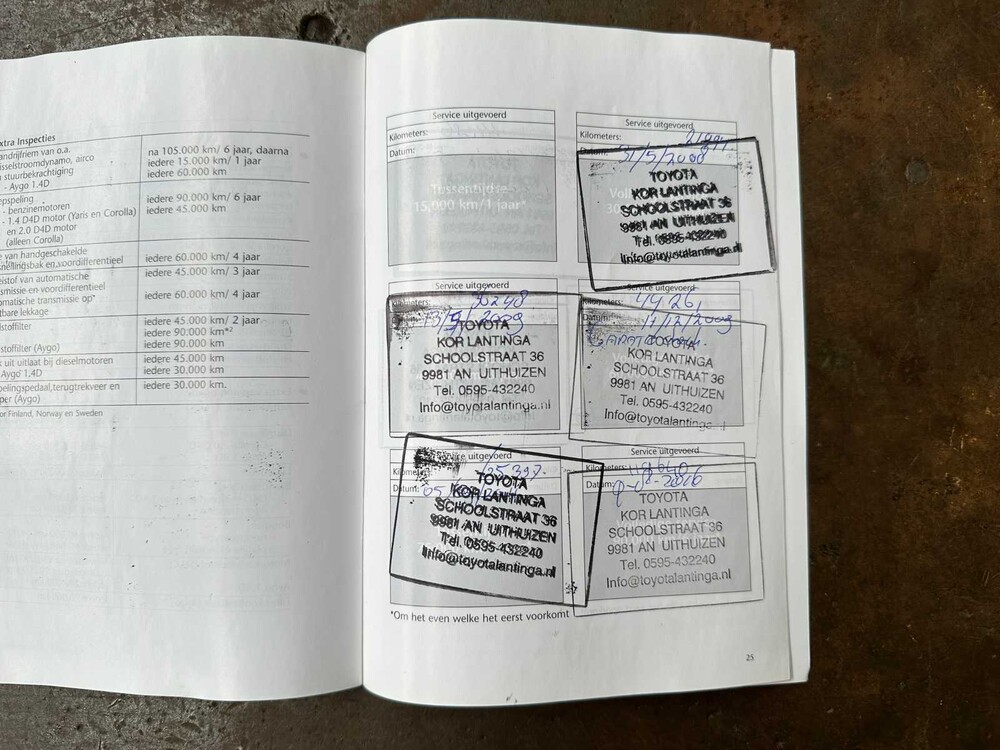 xtra Inspecties
andrijfriem van o.a.
isselstroomdynamo, airco
n stuurbekrachtiging
- Aygo 1.4D
na 105.000 km/ 6 jaar, daarna
iedere 15.000 km/ 1 jaar
iedere 60.000 km
epspeling
- benzinemotoren
- 1.4 D4D motor (Yaris en Corolla)
en 2.0 D4D motor
(alleen Corolla)
iedere 90.000 km/ 6 jaar
iedere 45.000 km
van handgeschakelde
nellingsbak en voordifferentieel
iedere 60.000 km/ 4 jaar
eistof van automatische
nsmissie en voordifferentieel
omatische transmissie op*
tbare lekkage
iedere 45.000 km/ 3 jaar
iedere 60.000 km/ 4 jaar
stoffilter
stoffilter (Aygo)
iedere 45.000 km/ 2 jaar
iedere 90.000 km*2
iedere 90.000 km
k uit uitlaat bij dieselmotoren
Aygo 1.4D
iedere 45.000 km
iedere 30.000 km
pelingspedaal,terugtrekveer en
per (Aygo)
iedere 30.000 km.
or Finland, Norway en Sweden
Service uitgevoerd
Kilometers:
Datum:
Tussentijdse
15.000 km/1 jaar*
Service uitgevoerd
Kilometers:
31/5/2008
TOYOTA
KOR LANTINGA
SCHOOLSTRAAT 36
9981 AN UITHUIZEN
Tel. 0595-432240
Info@toyotalantinga.nl
Service uitgevoerd
30248
2009
TOYOTA
KOR LANTINGA
SCHOOLSTRAAT 36
9981 AN UITHUIZEN
Tel. 0595-432240
Info@toyotalantinga.nl
Service uitgevoerd
Kilometers:
Datum: 17/12/2009
TOYOTA
KOR LANTINGA
SCHOOLSTRAAT 36
9981 AN UITHUIZEN
Tel. 0595-432240
Info@toyotalantinga.nl
Service uitgevoerd
Kilometers:
Datum: 05
TOYOTA
KOR LANTINGA
SCHOOLSTRAAT 36
9981 AN UITHUIZEN
Tel. 0595-432240
Info@toyotalantinga.nl
Service uitgevoerd
Kilometers:
Datum:
TOYOTA
KOR LANTINGA
SCHOOLSTRAAT 36
9981 AN UITHUIZEN
Tel. 0595-432240
Info@toyotalantinga.nl
*Om het even welke het eerst voorkomt
25